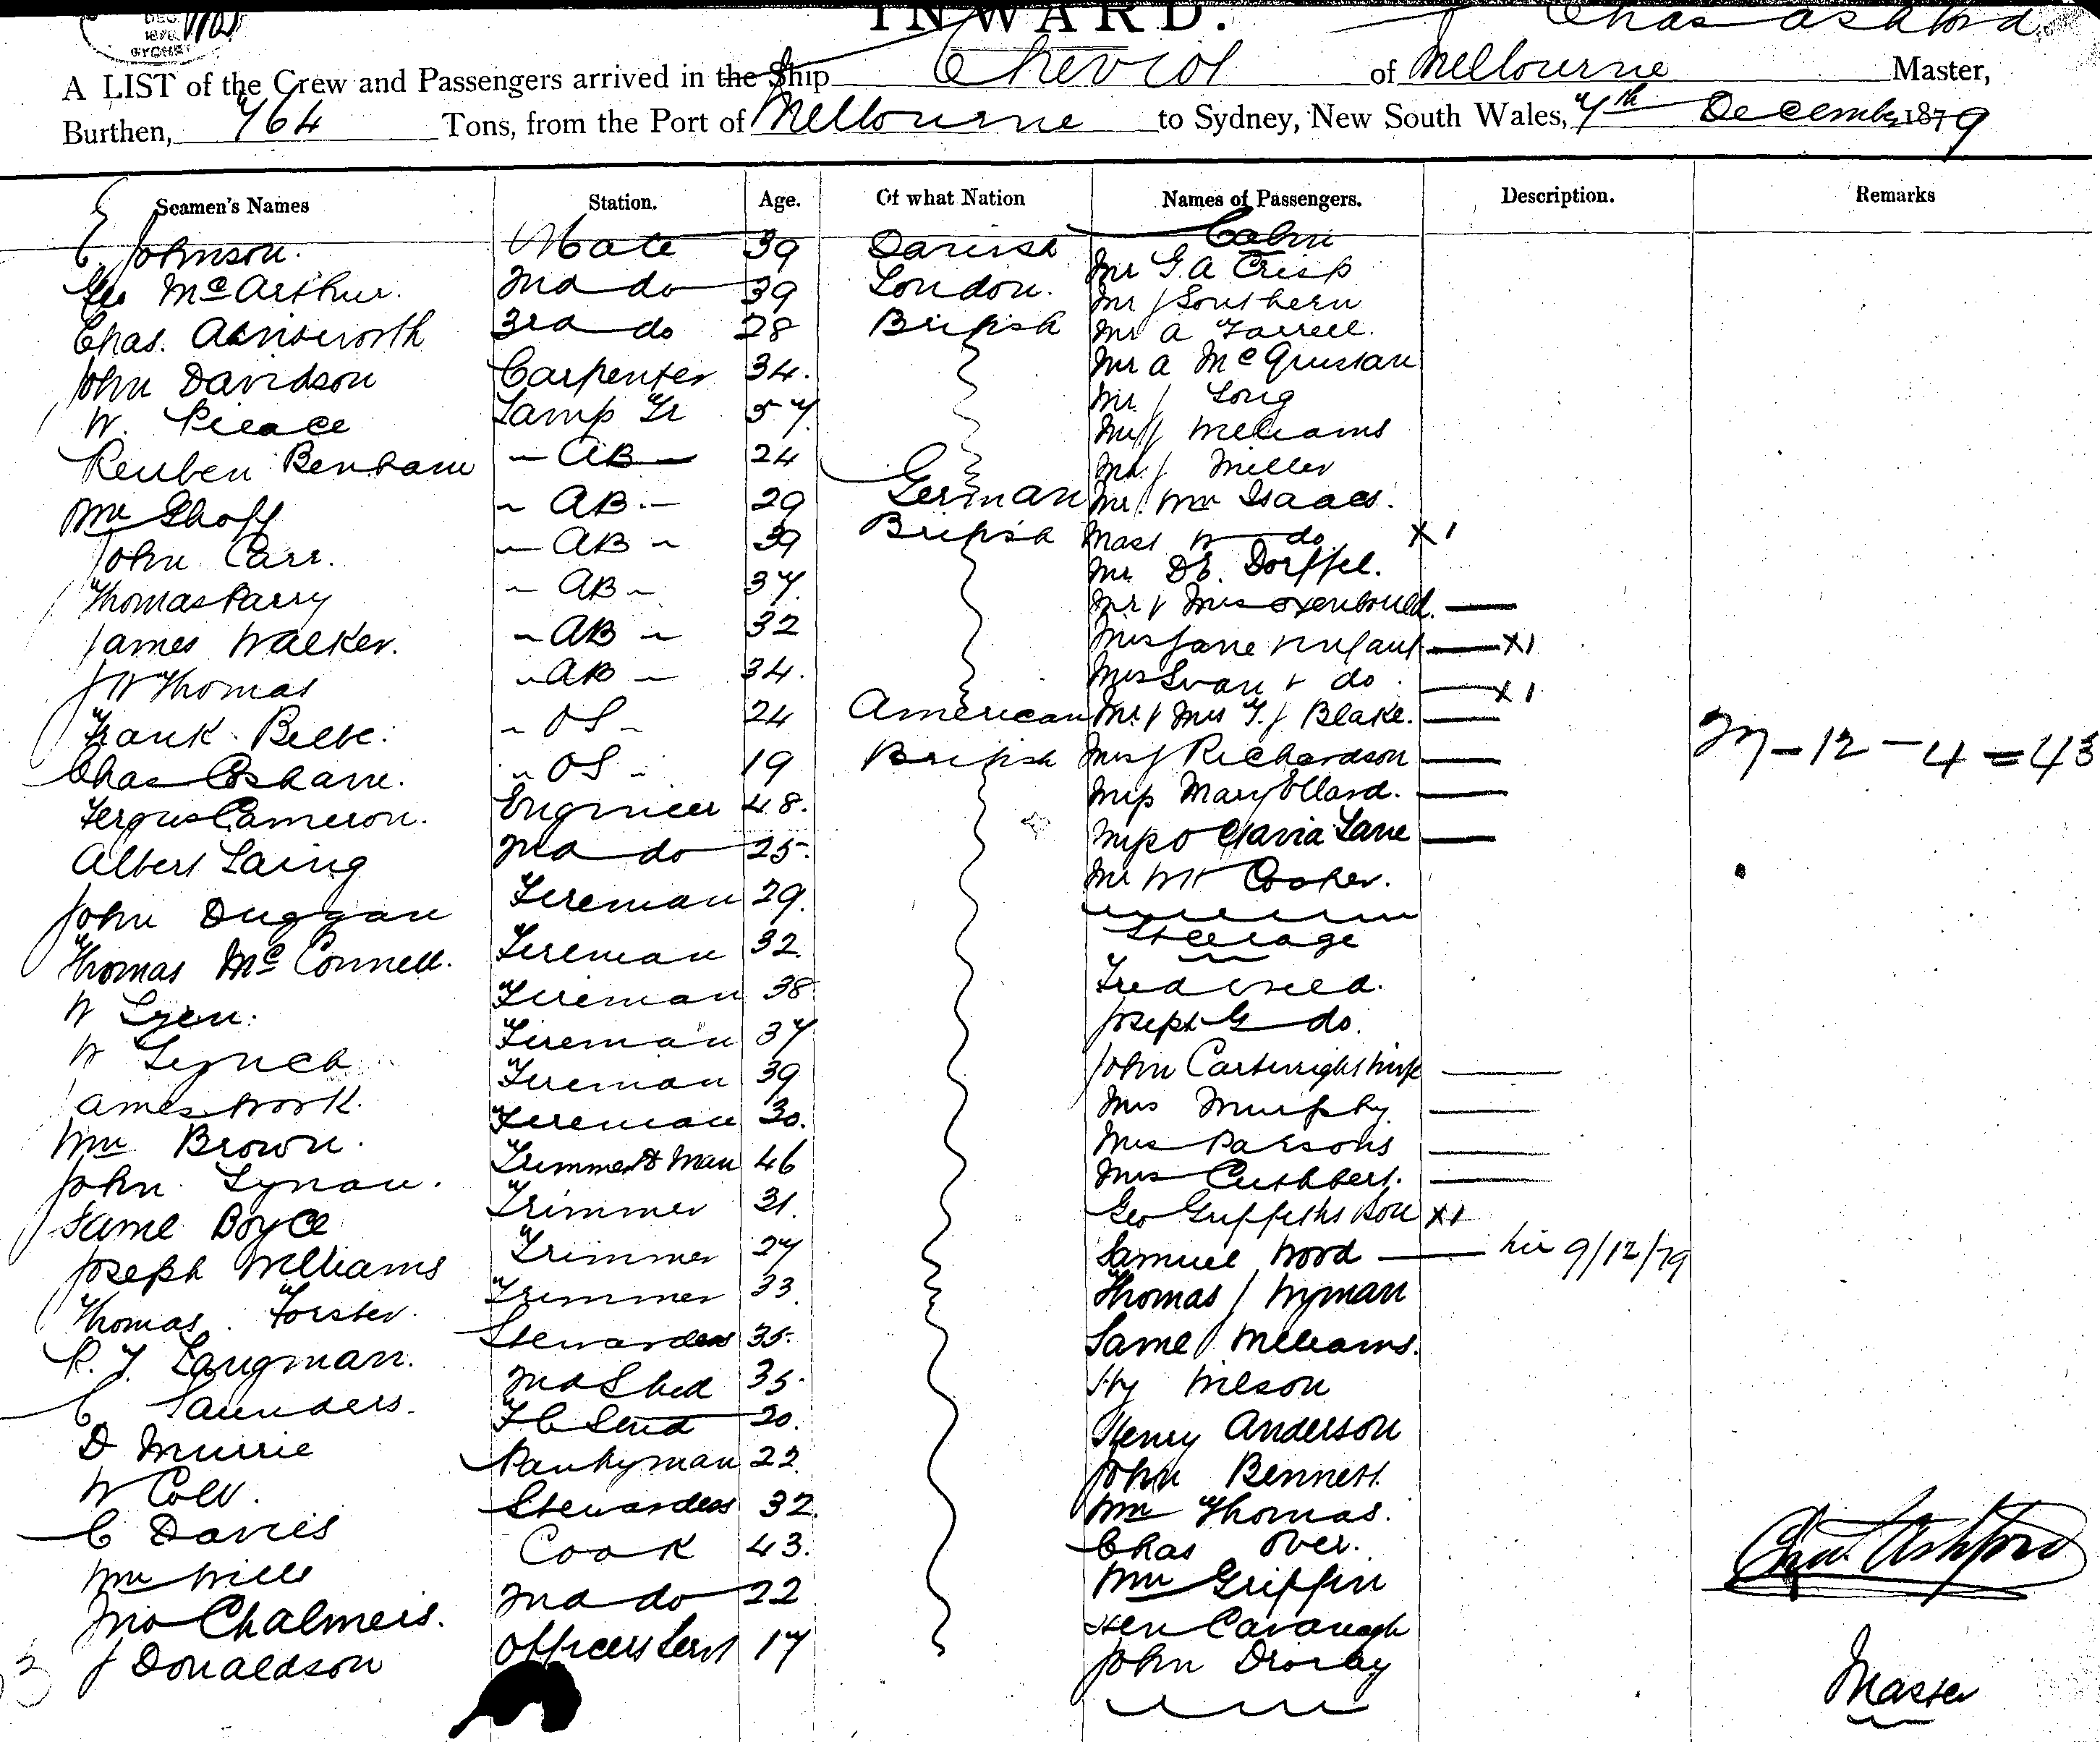 INWARD.
Chas Ashford
A LIST of the Crew and Passengers arrived in the Ship Cheviot of Melbourne Master,
Burthen, 764 Tons, from the Port of Melbourne to Sydney, New South Wales, 7th December 1879
Seamen's Names Station. Age. Of what Nation Names of Passengers. Description. Remarks
Cabin
C. Johnson. Mate 39 Danish Mr G. A Crisp
Geo McArthur. 2nd do 39 London. Mr J Southern
Chas. Ainsworth 3rd do 28 British Mr A Farrell.
John Davidson Carpenter 34. Mr A McGuinan
W. Pearce Lamp Tr 57 Mr J Long
Reuben Benham - AB - 24 Mr J Williams
Mr J Miller
Wm Ghoff - AB - 29 German Mr Wm Isaacs.
John Carr. - AB - 39 British Mast W do X1
Mr DE. Dorffel.
Thomas Parry - AB - 37 Mr & Mrs Oxenbould.
James Walker. - AB - 32 Mrs Jane & Infant X1
J W Thomas - AB - 34. Mrs Swan & do. X1
Frank Beebe. - OS - 24 American Mr & Mrs T. J Blake.
27 - 12 - 4 = 43
Chas Cosham. - OS - 19 British Mrs J Richardson
Fergus Cameron. Engineer 48. Miss Mary Ellard.
Albert Laing 2nd do 25. Miss Octavia Lane
John Duggan Fireman 29. Mr W H Cooper.
Steerage
Thomas McConnell. Fireman 32
W Lyen. Fireman 38 Fred
W Lynch Fireman 37 Joseph G do.
James Work. Fireman 39 John Cartwright & wife
Wm Brown. Fireman 30. Mrs Murphy
Mrs Parsons
John Lynau. Trimmer & Man 46 Mrs Cuthbert.
Saml Boyce Trimmer 31. Geo Griffiths & Son X1
Joseph Williams Trimmer 27 Samuel Wood 9/12/79
Thomas Forster. Trimmer 33 Thomas J Wyman
R. J. Langman. 35. Saml Williams.
C Saunders. 2nd Stwd 35. Hy Wilson
D Murrie 20. Henry Anderson
W Cole. Pantryman 22. John Bennett
C Davies Stewardess 32. Wm Thomas.
Wm Wills Cook 43. Chas Over.
Chas Ashford
Jno Chalmers. 2nd do 22 Wm Griffin
Hen Cavanagh
J Donaldson Officers Servt 17 John
Master